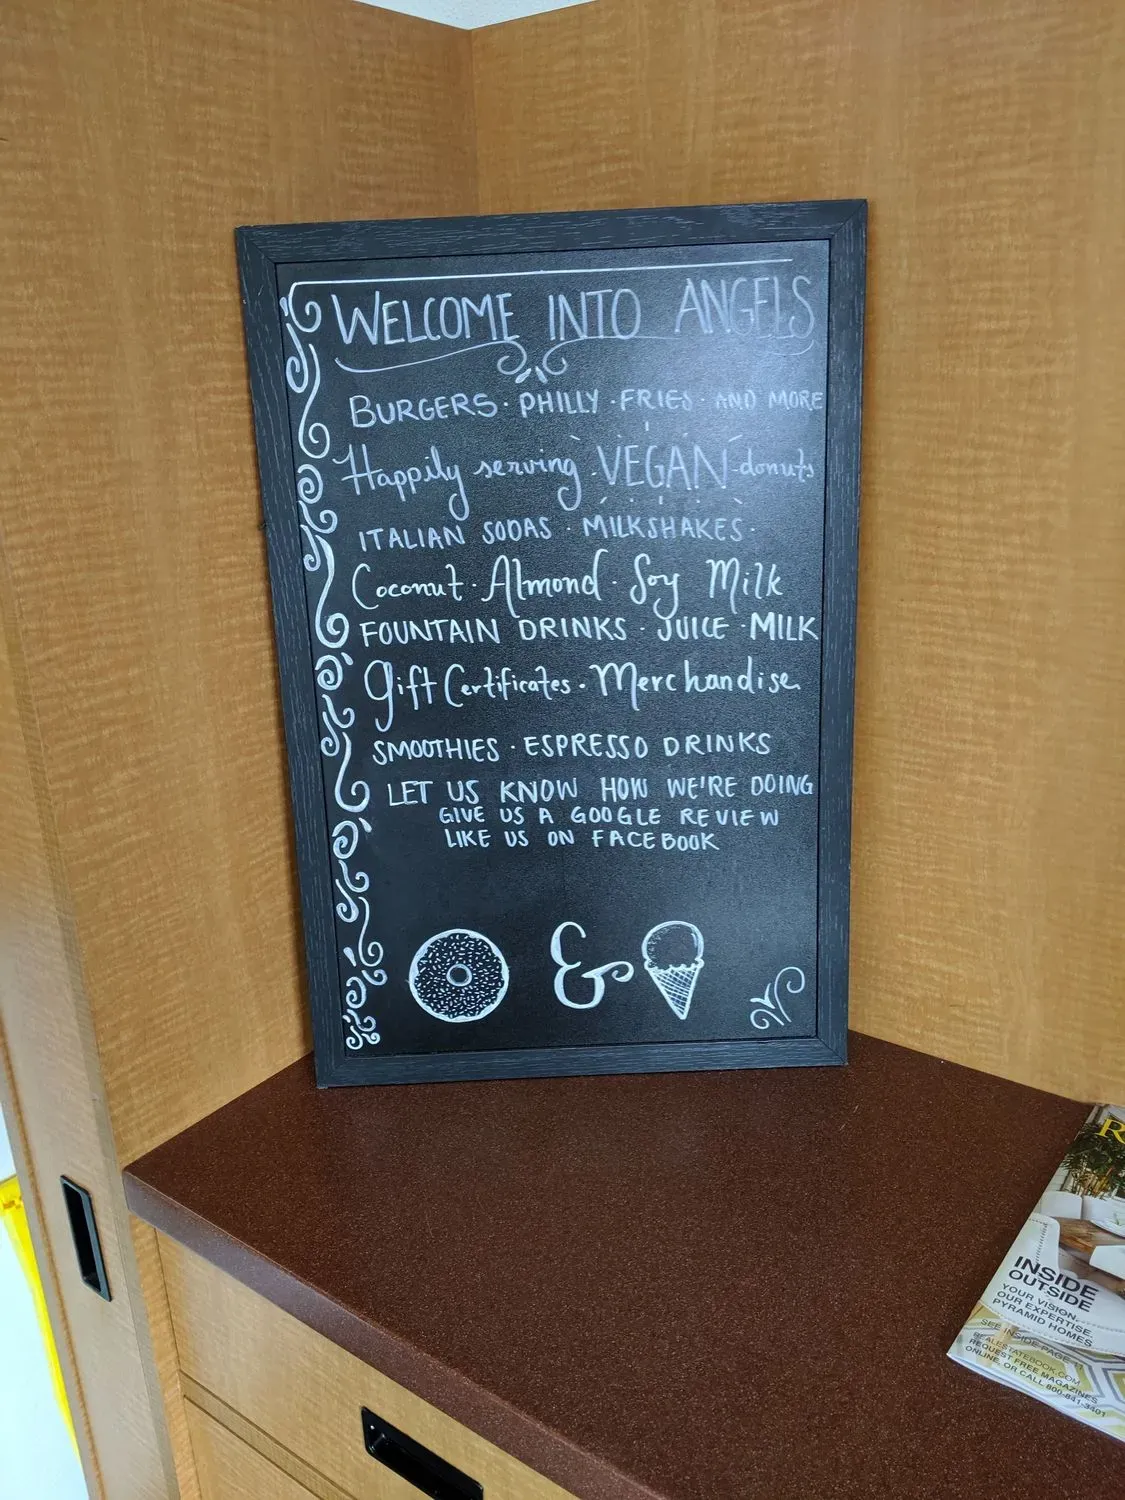 WELCOME INTO ANGELS
BURGERS · PHILLY · FRIES · AND MORE
Happily serving VEGAN donuts
ITALIAN SODAS · MILKSHAKES ·
Coconut · Almond · Soy Milk
FOUNTAIN DRINKS · JUICE · MILK
Gift Certificates · Merchandise
SMOOTHIES · ESPRESSO DRINKS
LET US KNOW HOW WE'RE DOING
GIVE US A GOOGLE REVIEW
LIKE US ON FACEBOOK
&
R
INSIDE
OUTSIDE
YOUR VISION.
OUR EXPERTISE.
PYRAMID HOMES
SEE INSIDE PAGE
REALESTATEBOOK.COM
REQUEST FREE MAGAZINES
ONLINE, OR CALL 800-841-3401